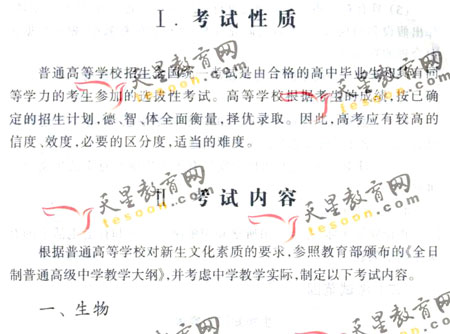 Ⅰ. 考试性质
普通高等学校招生全国统一考试是由合格的高中毕业生和具有同
等学力的考生参加的选拔性考试。高等学校根据考生的成绩,按已确
定的招生计划,德、智、体全面衡量,择优录取。因此,高考应有较高的
信度、效度,必要的区分度,适当的难度。
Ⅱ 考试内容
根据普通高等学校对新生文化素质的要求,参照教育部颁布的《全日
制普通高级中学教学大纲》,并考虑中学教学实际,制定以下考试内容。
一、生物
天星教育网
tesoon.com
天星教育网
tesoon.com
天星教育网
tesoon.com
天星教育网
tesoon.com
天星教育网
tesoon.com